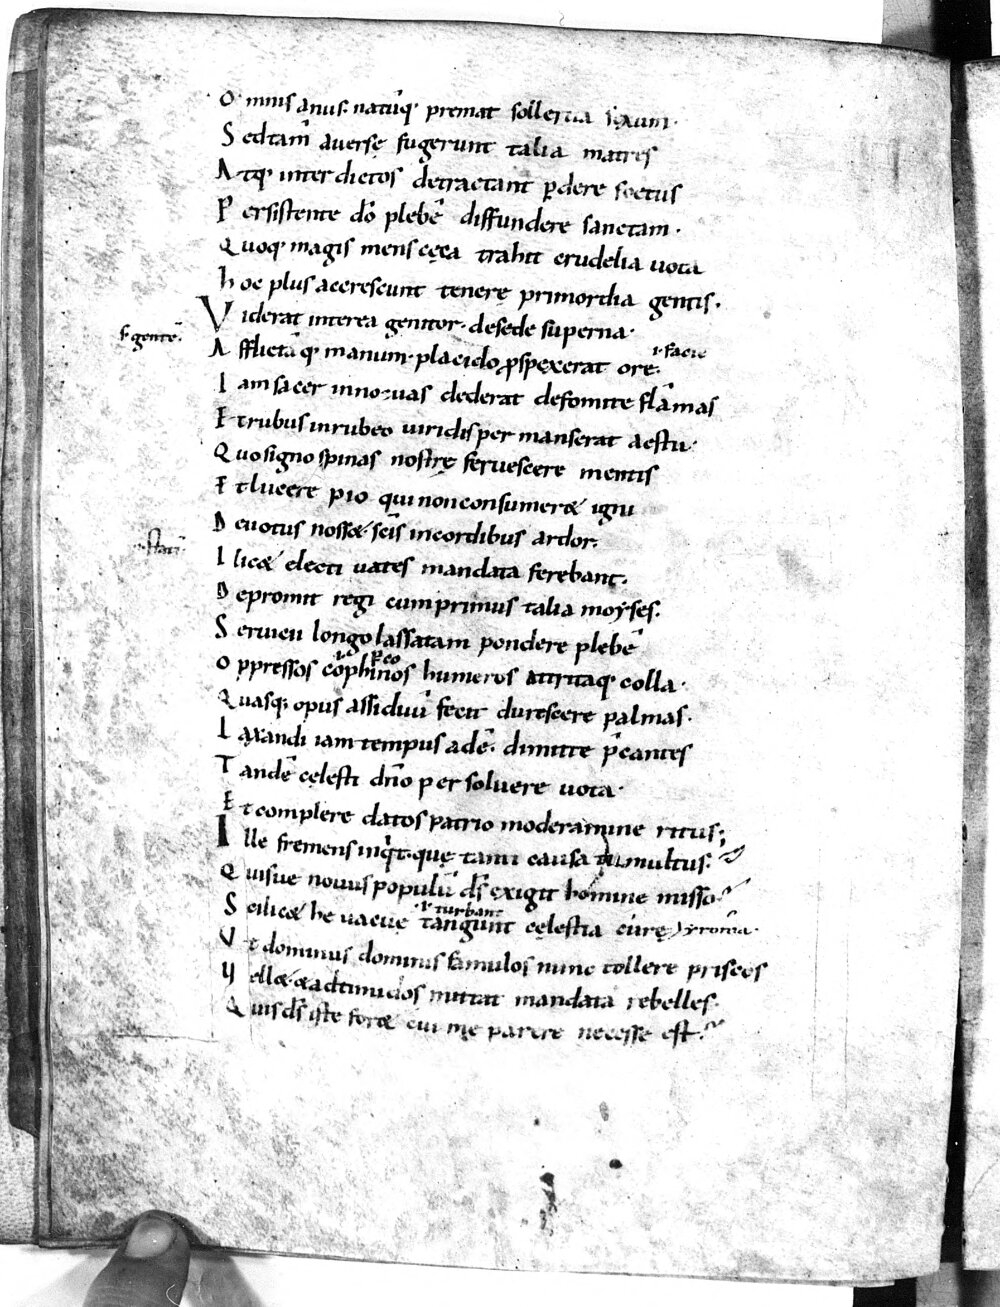 O mnis anus. natūq; premat sollertia sexum.
S ed tam̄ auersę fugerunt talia matres
A tq; interdictos detractant ꝑdere foetus
P ersistente dō plebē diffundere sanctam.
Q uoq; magis mens cęca trahit crudelia uota
h oc plus accrescunt tenerę primordia gentis.
V iderat interea genitor. desede superna.
s. gentē
A fflictā q; manum. placido ꝓspexerat ore.
i. facie
I am sacer innocuas dederat defomite flāmas
E t rubus inrubeo uiridis permanserat aestu.
Q uo signo spinas nostrę feruescere mentis
E t lucere pio qui non consumeret igni
D euotus nosset sc̄is incordibus ardor.
I licet electi uates mandata ferebant.
D epromit regi cum primus talia moyses.
S eruicii longo lassatam pondere plebē
O ppressos cophinos humeros attritaq; colla.
Q uasq; opus assiduū fecit durescere palmas.
L axandi iam tempus adē. dimitte p̄cantes
T andē cęlesti dn̄o persoluere uota.
E t complere datos patrio moderamine ritus;
I lle fremens inq̇t. quę tanti causa tumultus.
Q uisue nouus populū ds̄ exigit homine misso.
S cilicet he uacuę tangunt cęlestia curę
i. turbant
V t dominus dominis famulos nunc tollere priscos
V ellet. et adtimidos mittat mandata rebelles.
Q uis ds̄ iste foret cui me parere necesse est.